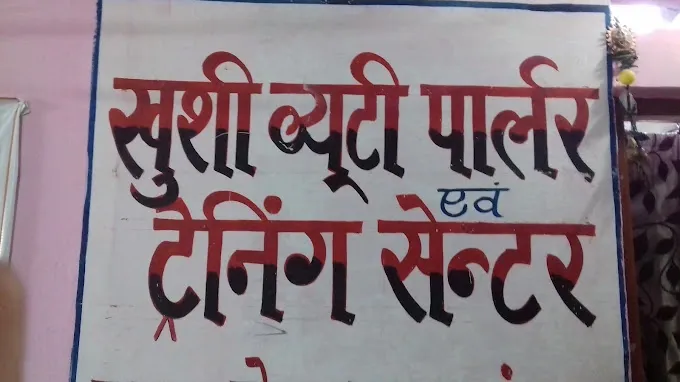 सुशी ब्यूटी पार्लर
एवं
ट्रेनिंग सेन्टर